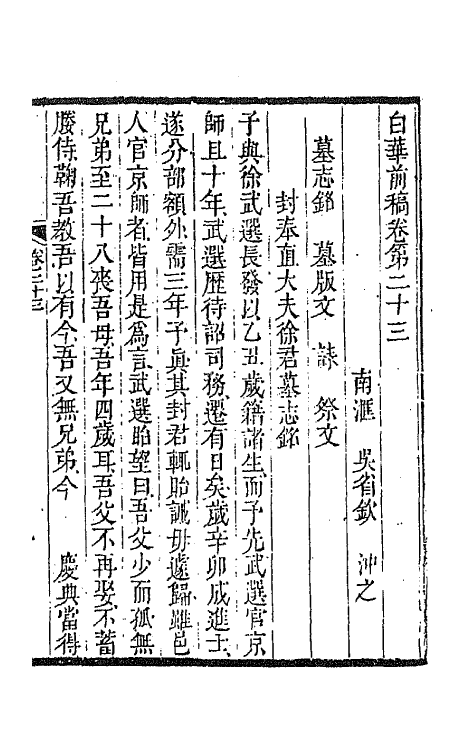 白華前稿卷第二十三
南滙　吳省欽　沖之
墓志銘　墓版文　誄　祭文
封奉直大夫徐君墓志銘
予與徐武選長發以乙丑歲籍諸生而予先武選官京
師且十年武選歷待詔司務遷有日矣歲辛卯成進士
遂分部額外需三年予冀其封君輒貽誡毋遽歸雖邑
人官京師者皆用是爲言武選眙望曰吾父少而孤無
兄弟至二十八喪吾母吾年四歲耳吾父不再娶不蓄
媵侍鞠吾教吾以有今吾又無兄弟今　慶典當得
卷二十三